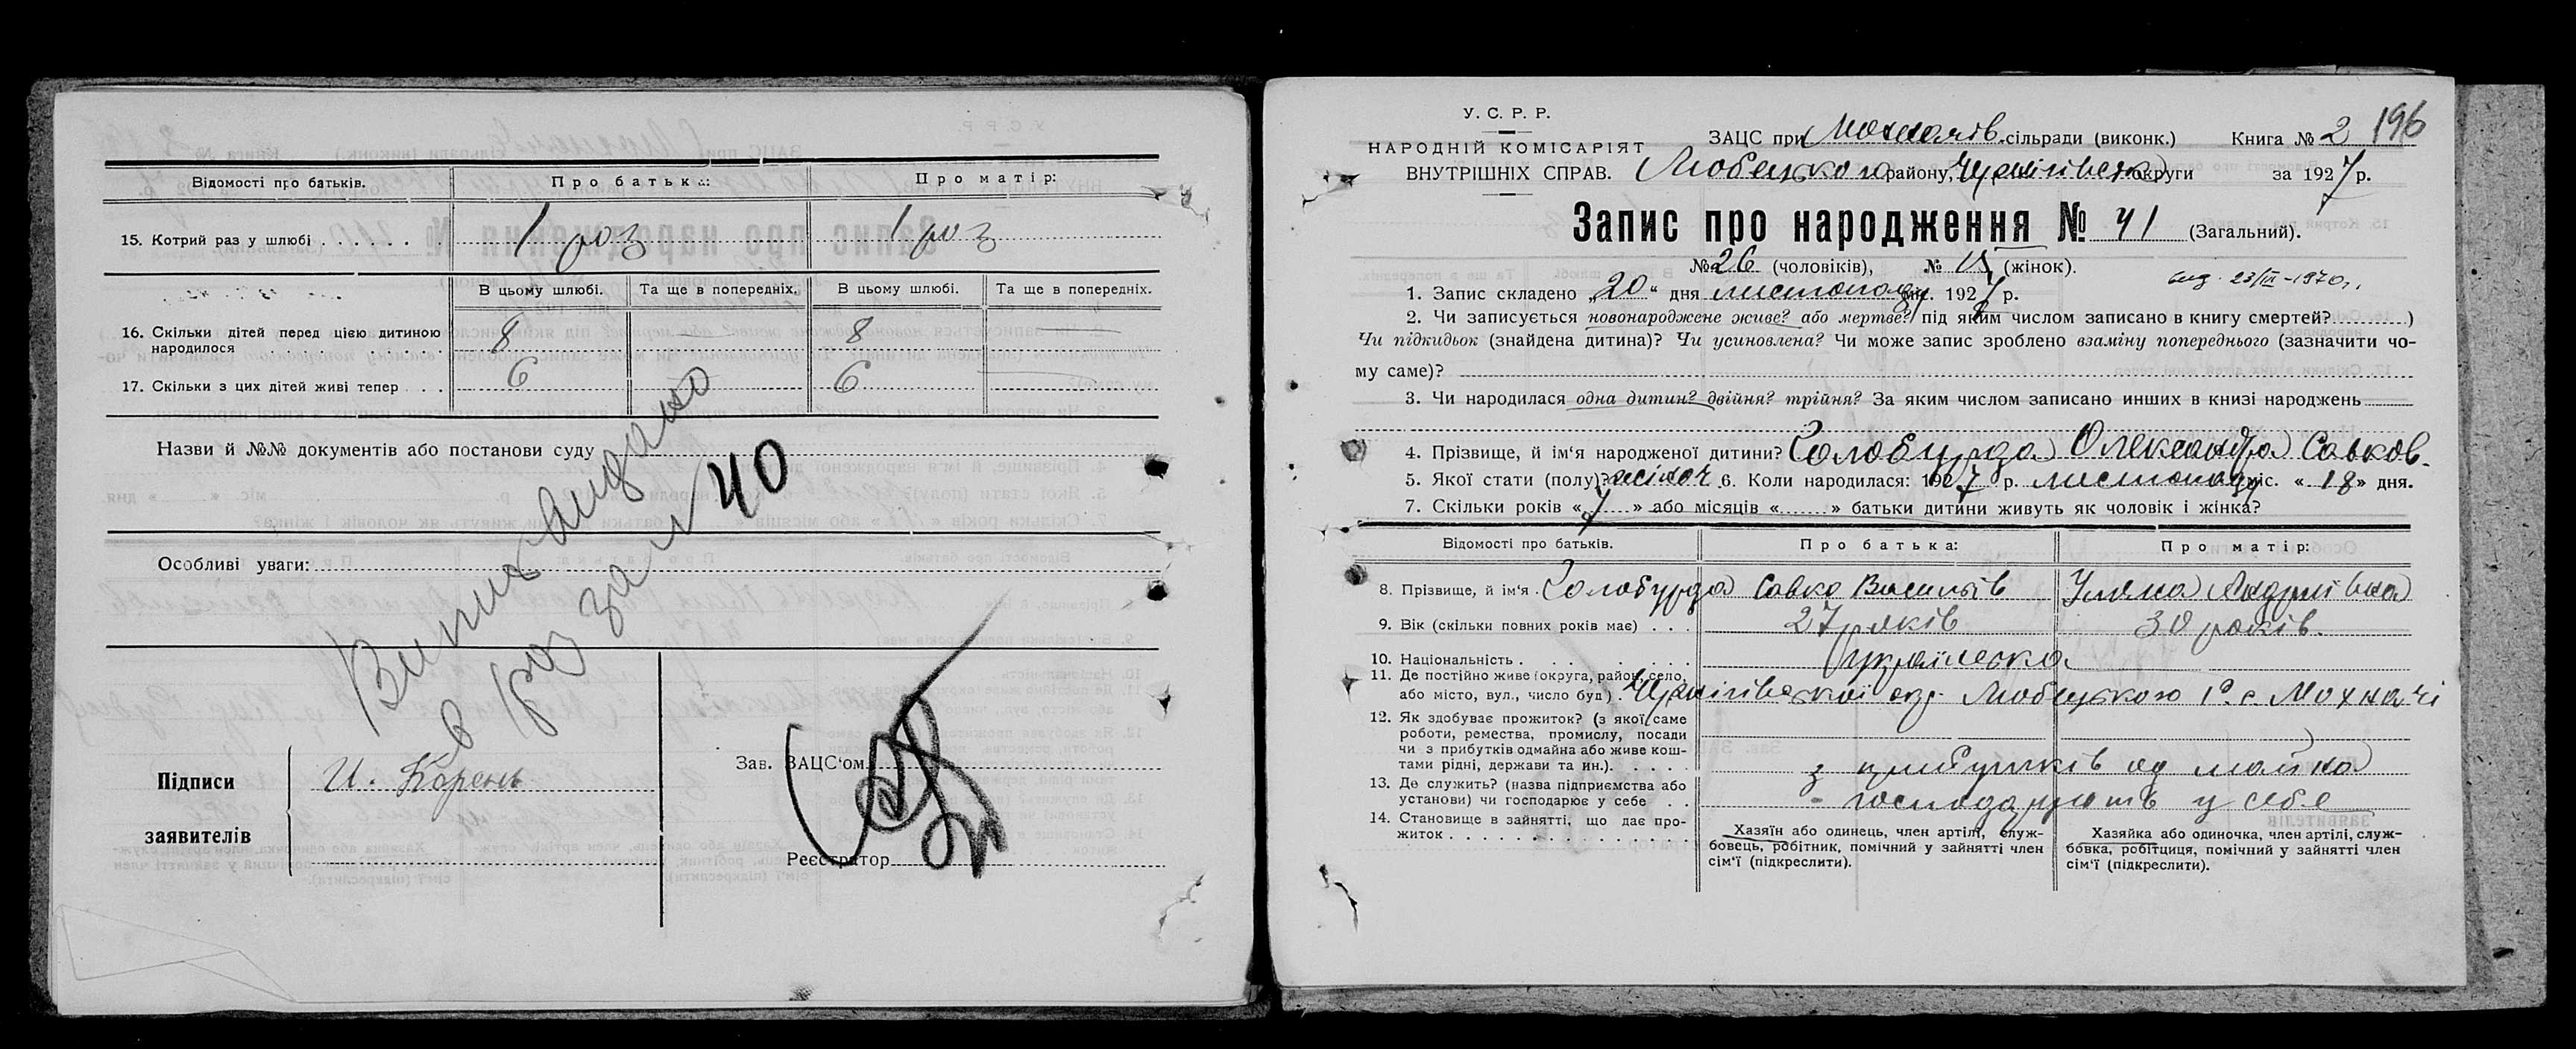 Відомості про батьків. Про батька: Про матір:
15. Котрий раз у шлюбі . . . . . . 1 раз 1 раз
В цьому шлюбі. Та ще в попередніх. В цьому шлюбі. Та ще в попередніх.
16. Скільки дітей перед цією дитиною
народилося . . . . . . . . . 8 — 8
17. Скільки з цих дітей живі тепер . . . 6 6
Назви й №№ документів або постанови суду
Особливі уваги:
Випис видано
в раз за № 40
Підписи
заявителів
И. Корень
Зав. ЗАЦС'ом
Реєстратор
У. С. Р. Р.
НАРОДНІЙ КОМІСАРІЯТ
ВНУТРІШНІХ СПРАВ.
ЗАЦС при Мохначів. сільради (виконк.) Книга № 2 196
Любецького району, Чернігівської округи за 1927 р.
Запис про народження № 41 (Загальний).
№ 26 (чоловіків), № 15 (жінок).
вид. 23/III-1970 г.
1. Запис складено „20“ дня листопаду міс. 1927 р.
2. Чи записується новонароджене живе? або мертве? під яким числом записано в книгу смертей?..........)
Чи підкидьок (знайдена дитина)? Чи усиновлена? Чи може запис зроблено взаміну попереднього (зазначити чо-
му саме)?
3. Чи народилася одна дитин? двійня? трійня? За яким числом записано инших в книзі народжень
4. Прізвище, й ім'я народженої дитини?Голобурда Олександра Савков.
5. Якої стати (полу)? жіноч. 6. Коли народилася: 1927 р. листопаду міс. «18» дня.
7. Скільки років «7» або місяців «......» батьки дитини живуть як чоловік і жінка?
Відомості про батьків. Про батька: Про матір:
8. Прізвище, й ім'я . Голобурда Савка Васильів Уляна Андріївна
9. Вік (скільки повних років має) . . . 27 років 30 років.
10. Національність . . . . . . . . українська
11. Де постійно живе (округа, район, село,
або місто, вул., число буд.) . Чернігівської окр. Любецького р. с. Мохначі
12. Як здобуває прожиток? (з якої саме
роботи, ремества, промислу, посади
чи з прибутків одмайна або живе кош-
тами рідні, держави та ин.). . . . . . з прибутків од майна
13. Де служить? (назва підприємства або
установи) чи господарює у себе . . - господарюють у себе
14. Становище в зайнятті, що дає про-
житок . . . . . . . . . . . . . .
Хазяїн або одинець, член артілі, служ-
бовець, робітник, помічний у зайнятті член
сім'ї (підкреслити).
Хазяйка або одиночка, член артілі, служ-
бовка, робітциця, помічний у зайнятті член
сім'ї (підкреслити).